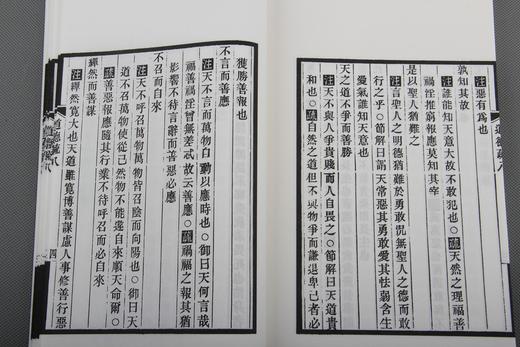 注惡有為也
孰知其故
注誰能知天意大故不敢犯也○疏天然之理福善
禍淫推窮報應莫知其宰
是以聖人猶難之
注言聖人之明德猶難於勇敢況無聖人之德而敢
行之乎○節解曰謂天常惡其勇敢愛其怯弱含生
愛氣誰知天意也
天之道不爭而善勝
注天不與人爭貴賤而人自畏之○節解曰天道貴
和也○疏自然之道但不與物爭而謙退卑己者必
獲勝善報也
不言而善應
注天不言而萬物自動以應時也○御曰天何言哉
福善禍淫曾無差忒故云善應○疏禍福之報其猶
影響不待言辭而善惡必應
不召而自來
注天不呼召萬物萬物皆召陰而向陽也○御曰天
道不召萬物使從己然物不能違自來順天命爾○
疏善惡報應隨其行業不待呼召而必自來
繟然而善謀
注繟然寬也天道雖寬博善謀慮人事修善行惡
道德疏八
四